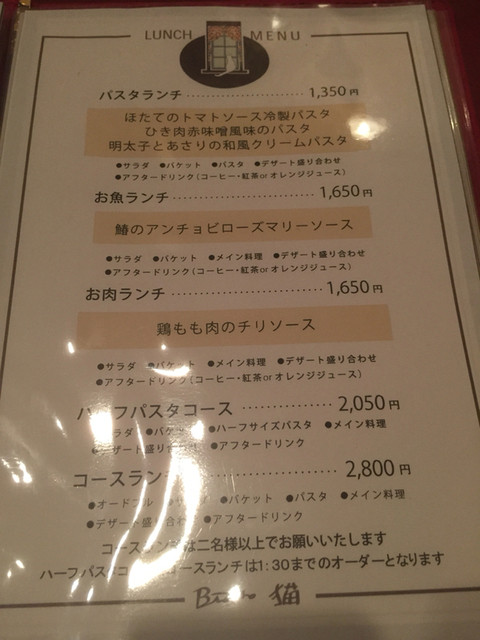 LUNCH MENU
パスタランチ 1,350円
ほたてのトマトソース冷製パスタ
ひき肉赤味噌風味のパスタ
明太子とあさりの和風クリームパスタ
●サラダ ●バケット ●パスタ ●デザート盛り合わせ
●アフタードリンク(コーヒー・紅茶orオレンジジュース)
お魚ランチ 1,650円
鰆のアンチョビローズマリーソース
●サラダ ●バケット ●メイン料理 ●デザート盛り合わせ
●アフタードリンク(コーヒー・紅茶orオレンジジュース)
お肉ランチ 1,650円
鶏もも肉のチリソース
●サラダ ●バケット ●メイン料理 ●デザート盛り合わせ
●アフタードリンク(コーヒー・紅茶orオレンジジュース)
ハーフパスタコース 2,050円
●サラダ ●バケット ●ハーフサイズパスタ ●メイン料理
●デザート盛り合わせ ●アフタードリンク
コースランチ 2,800円
●オードブル ●サラダ ●バケット ●パスタ ●メイン料理
●デザート盛り合わせ ●アフタードリンク
コースランチは二名様以上でお願いいたします
ハーフパスタコース・コースランチは1:30までのオーダーとなります
猫